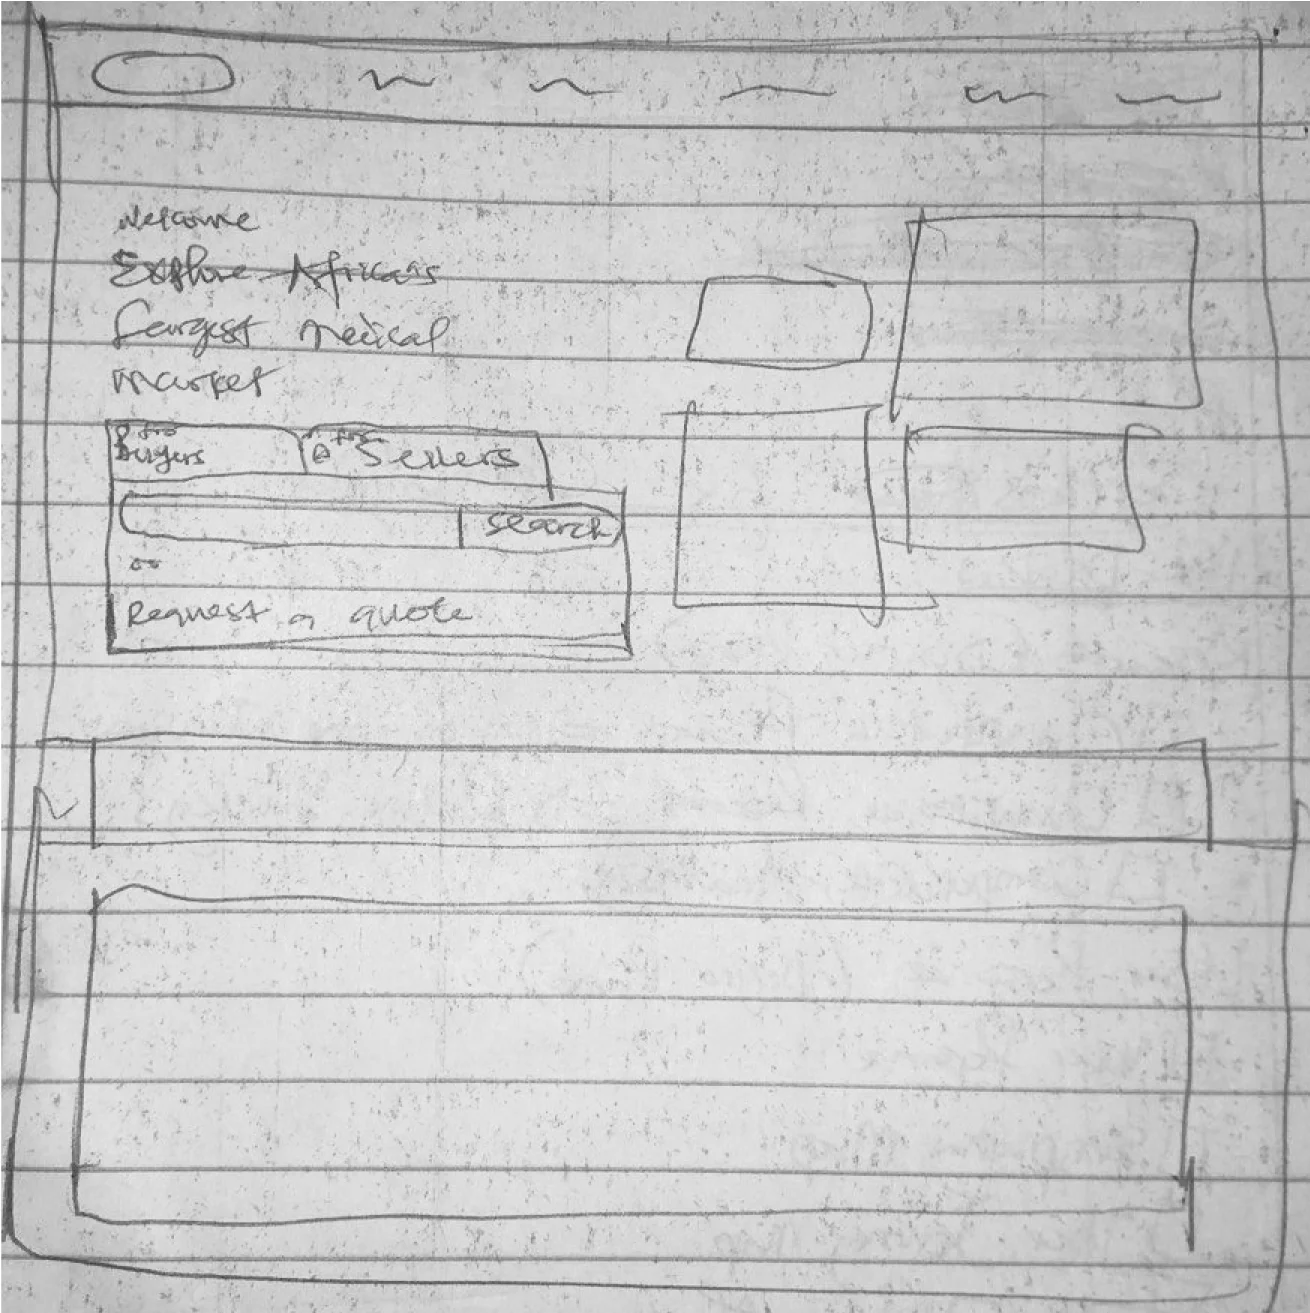 Welcome
Explore Africa's
Largest medical
market
for Buyers
for Sellers
search
Request a quote